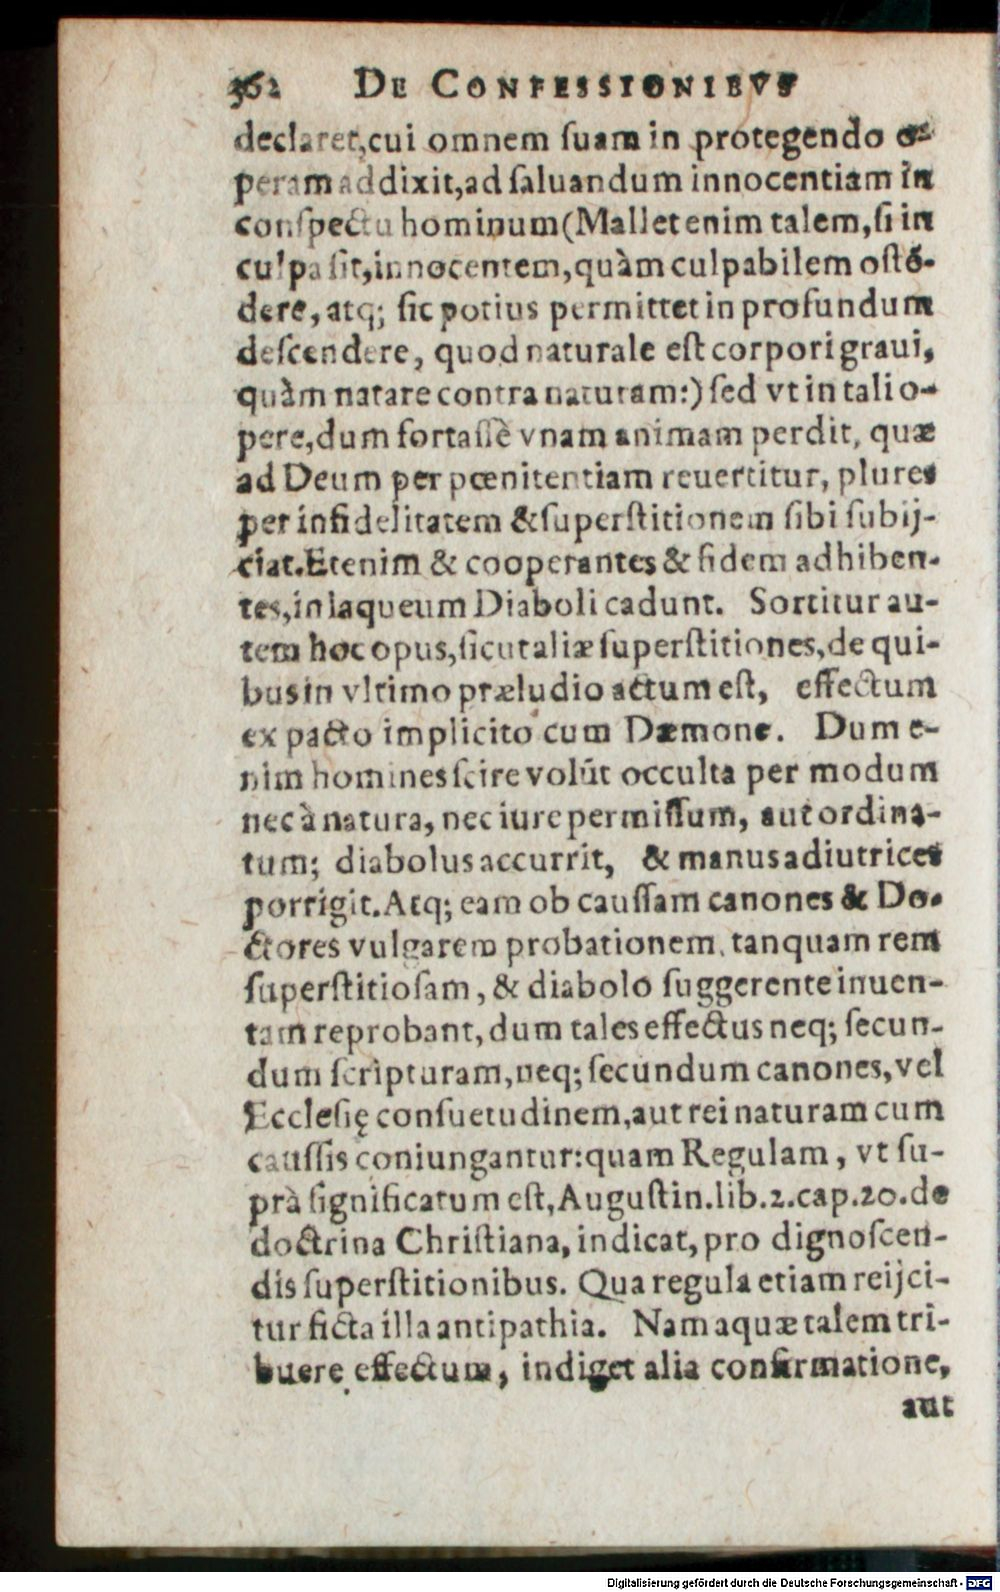 362 DE CONFESSIONIBVS
declaret,cui omnem ſuam in protegendo o-
peram addixit,ad ſaluandum innocentiam in
conſpectu hominum(Mallet enim talem,ſi in
culpa ſit,innocentem,quàm culpabilem oſtẽ-
dere, atq; ſic potius permittet in profundum
deſcendere, quod naturale eſt corpori graui,
quàm natare contra naturam:) ſed vt in tali o-
pere,dum fortaſſè vnam animam perdit, quæ
ad Deum per pœnitentiam reuertitur, plures
per infidelitatem & ſuperſtitionem ſibi ſubij-
ciat.Etenim & cooperantes & fidem adhiben-
tes,in laqueum Diaboli cadunt. Sortitur au-
tem hoc opus,ſicut aliæ ſuperſtitiones,de qui-
bus in vltimo præludio actum eſt, effectum
ex pacto implicito cum Dæmone. Dum e-
nim homines ſcire volũt occulta per modum
nec à natura, nec iure permiſſum, aut ordina-
tum; diabolus accurrit, & manus adiutrices
porrigit.Atq; eam ob cauſſam canones & Do-
ctores vulgarem probationem, tanquam rem
ſuperſtitioſam, & diabolo ſuggerente inuen-
tam reprobant, dum tales effectus neq; ſecun-
dum ſcripturam,neq; ſecundum canones, vel
Eccleſię conſuetudinem,aut rei naturam cum
cauſſis coniungantur:quam Regulam, vt ſu-
prà ſignificatum eſt,Auguſtin.lib.2.cap.20.de
doctrina Chriſtiana, indicat, pro dignoſcen-
dis ſuperſtitionibus. Qua regula etiam reijci-
tur ficta illa antipathia. Nam aquæ talem tri-
buere effectum, indiget alia confirmatione,
aut
Digitalisierung gefördert durch die Deutsche Forschungsgemeinschaft - DFG